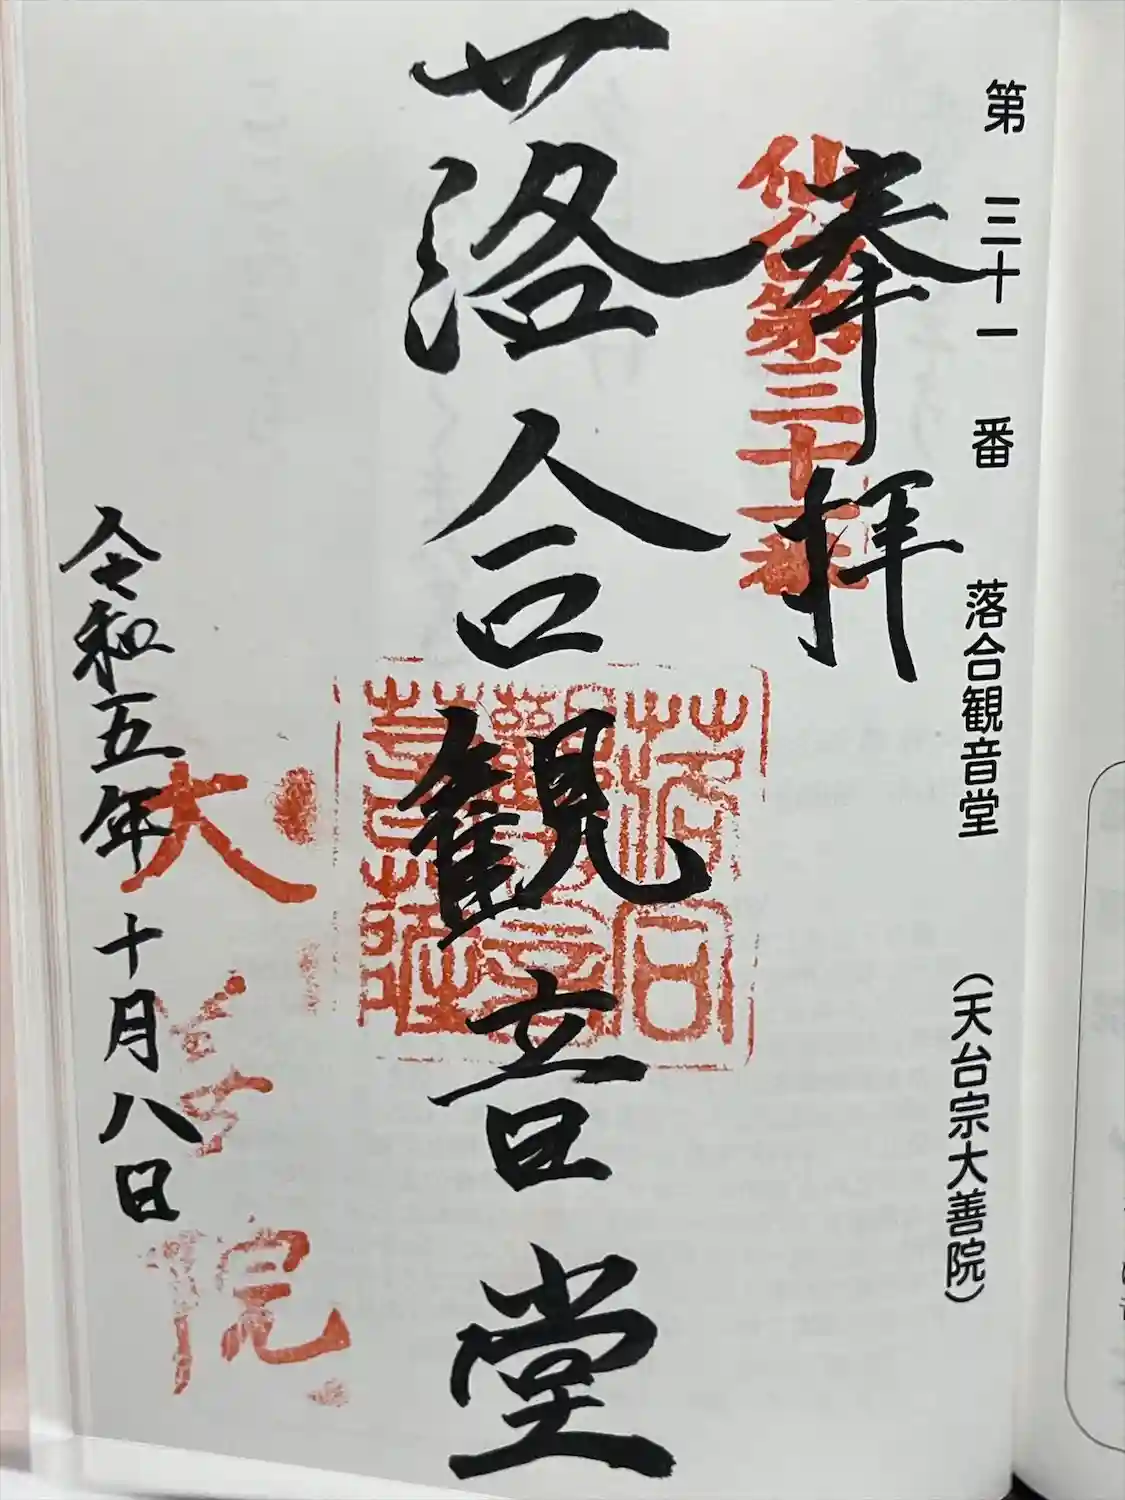 第三十一番 落合観音堂 (天台宗大善院)
奉拝
仙台第三十一番
落合観音堂
大善院
令和五年十月八日